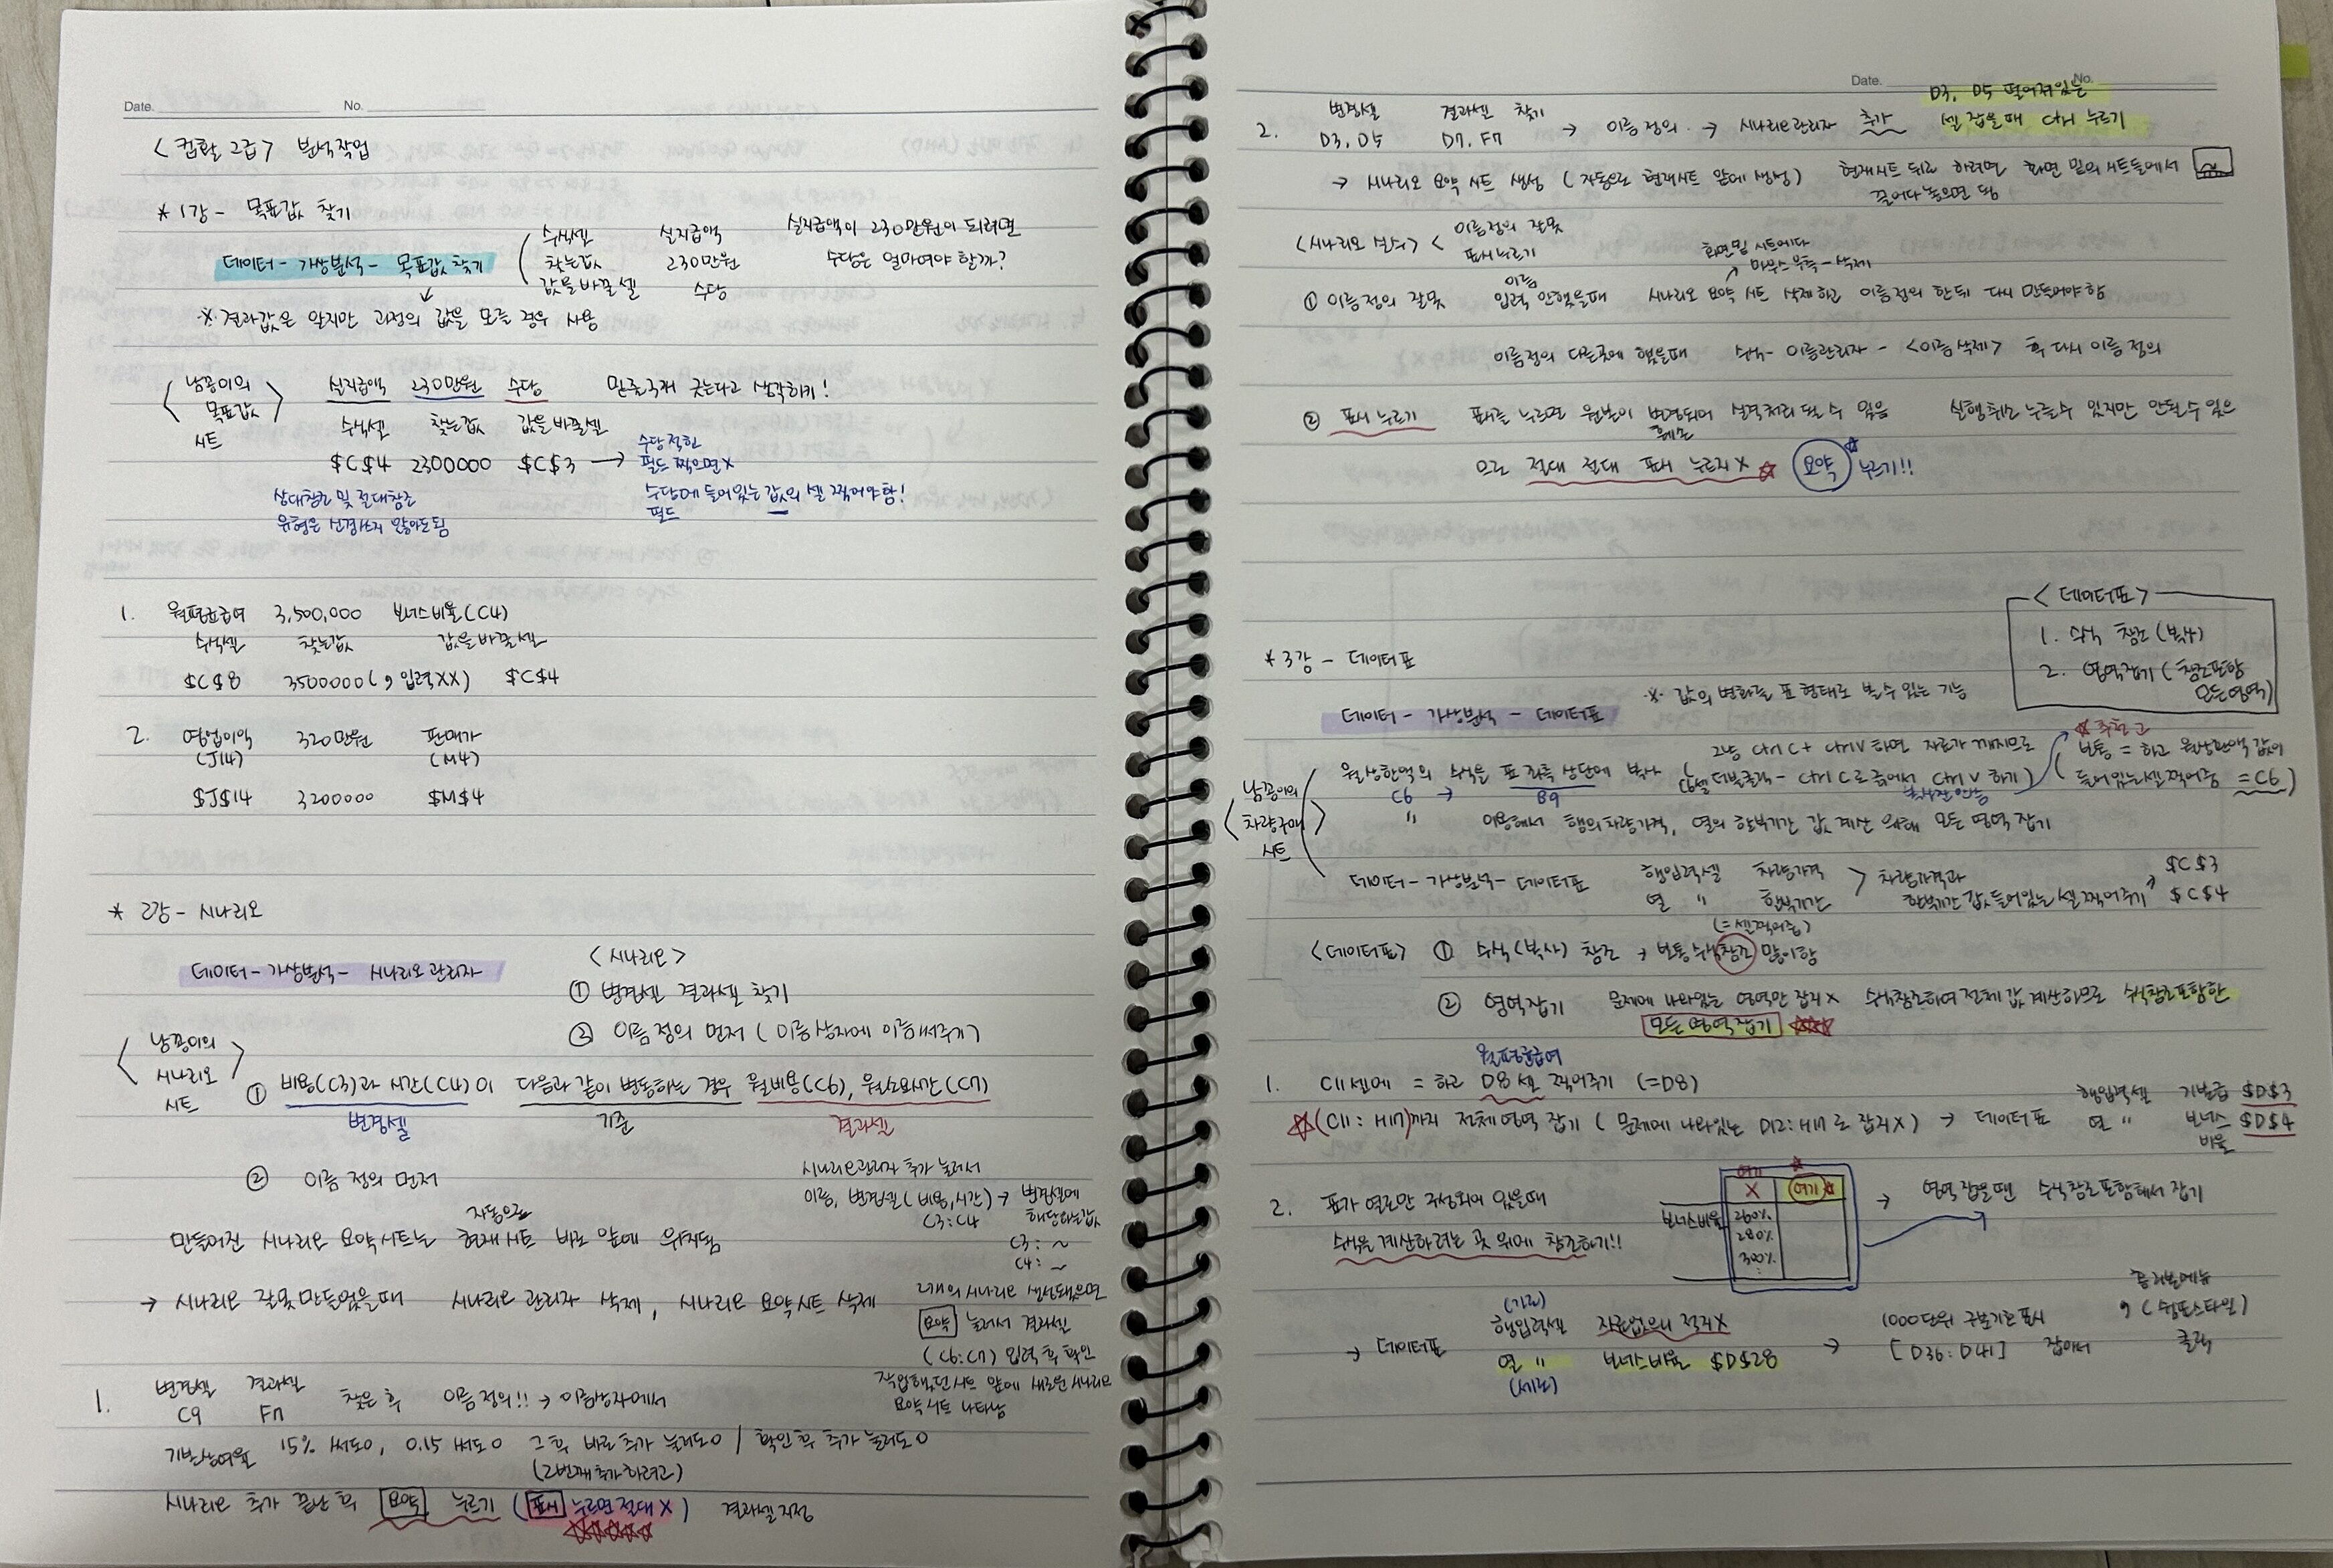 Date. No.
<컴활 2급> 분석작업
* 1강 - 목표값 찾기
데이터 - 가상분석 - 목표값 찾기
수식셀 실지급액
찾는값 230만원
값을바꿀셀 수당
실지급액이 230만원이 되려면
수당은 얼마여야 할까?
※ 결과값은 알지만 과정의 값을 모를 경우 사용
<남콩이의 목표값 시트>
실지급액 230만원 수당 밑줄 3개 긋는다고 생각하기!
수식셀 찾는값 값을바꿀셀
$C$4 2300000 $C$3 →
수당 적힌
필드 찍으면 X
수당에 들어있는 값의 셀 찍어야함!
필드
상대참조 및 절대참조
유형은 신경쓰지 않아도됨
1. 월평균급여 3,500,000 보너스비율(C4)
수식셀 찾는값 값을바꿀셀
$C$8 3500000(, 입력XX) $C$4
2. 영업이익 320만원 판매가
(J14) (M4)
$J$14 3200000 $M$4
* 2강 - 시나리오
데이터 - 가상분석 - 시나리오 관리자
<시나리오>
① 변경셀 결과셀 찾기
② 이름 정의 먼저 (이름상자에 이름해주기)
<남콩이의 시나리오 시트>
① 비용(C3)과 시간(C4)이 다음과 같이 변동하는 경우 월비용(C6), 월소요시간(C7)
변경셀 기준 결과셀
② 이름 정의 먼저
시나리오관리자 추가 눌러서
이름, 변경셀(비용,시간) → 변경셀에
C3:C4 해당하는값
C3: ~
C4: ~
자동으로
만들어진 시나리오 요약시트는 현재시트 바로 앞에 위치됨
→ 시나리오 잘못만들었을때 시나리오 관리자 삭제, 시나리오 요약시트 삭제
2개의 시나리오 생성됐으면
요약 눌러서 결과셀
(C6:C7) 입력 후 확인
작업했던시트 앞에 새로운 시나리오
요약시트 나타남
1. 변경셀 결과셀 찾은 후 이름 정의!! → 이름상자에서
C9 F17
기본상여율 15% 써도O, 0.15 써도O 그 후 바로 추가 눌러도O / 확인 후 추가 눌러도O
(2번째 추가하려고)
시나리오 추가 끝난 후 요약 누르기 (표시 누르면 절대X) 결과셀지정
Date. No.
D3, D5 떨어져있는
셀 잡을때 Ctrl 누르기
2. 변경셀 결과셀 찾기 → 이름 정의 → 시나리오관리자 추가
D3, D5 D7, F7
→ 시나리오 요약 시트 생성 (자동으로 현재시트 앞에 생성) 현재시트 뒤로 하려면 화면 밑의 시트들에서
끌어다 놓으면 됨
<시나리오 실수> < 이름정의 잘못
표시누르기
화면밑 시트에다
마우스 우측 - 삭제
① 이름정의 잘못 이름 입력 안했을때 시나리오 요약 시트 삭제하고 이름정의 한뒤 다시 만들어야함
이름정의 다른곳에 했을때 수식 - 이름관리자 - <이름 삭제> 후 다시 이름 정의
② 표시 누르기 표시를 누르면 원본이 변경되어 실격처리 될 수 있음 실행취소 누를수 있지만 안될수 있으
므로 절대 절대 표시 누르지X 요약 누르기!!
<데이터표>
1. 수식 참조(복사)
2. 영역잡기(참조포함
모든영역)
* 3강 - 데이터표
※ 값의 변화를 표 형태로 볼수 있는 기능
데이터 - 가상분석 - 데이터표
<남콩이의 차량구매 시트>
그냥 Ctrl C + Ctrl V 하면 자료가 깨지므로
월상환액의 수식은 표 좌측 상단에 복사
C6 → B9
C6셀 더블클릭 - Ctrl C로 긁어서 Ctrl V 하기
추천
보통 = 하고 월상환액 값이
들어있는셀 찍어줌 =C6
" 이용해서 행의 차량가격, 열의 할부기간 값 계산 위해 모든 영역 잡기
데이터 - 가상분석 - 데이터표 행입력셀 차량가격 > 차량가격과 $C$3
열 " 할부기간 할부기간 값 들어있는 셀 찍어주기 $C$4
(=셀찍어줌)
<데이터표> ① 수식(복사) 참조 → 보통 수식참조 많이함
② 영역잡기 문제에 나와있는 영역만 잡지X 수식참조하여 전체 값 계산하므로 수식참조포함한
모든영역잡기
월평균급여
1. C11셀에 = 하고 D8 셀 찍어주기 (=D8)
(C11:H17)까지 전체영역 잡기 (문제에 나와있는 D12:H17로 잡지X) → 데이터표 행입력셀 기본급 $D$3
열 " 보너스 $D$4
비율
2. 표가 열로만 구성되어 있을때
수식을 계산하려는 곳 위에 참조하기!!
여기
X 여기
보너스비율 260%
280%
300%
→ 영역 잡을땐 수식참조포함해서 잡기
(가로)
→ 데이터표 행입력셀 자료없으니 적지X
열 " 보너스비율 $D$28
(세로)
→ 1000단위 구분기호표시
[D36:D41] 잡아서
홈 리본메뉴
, (쉼표스타일)
클릭